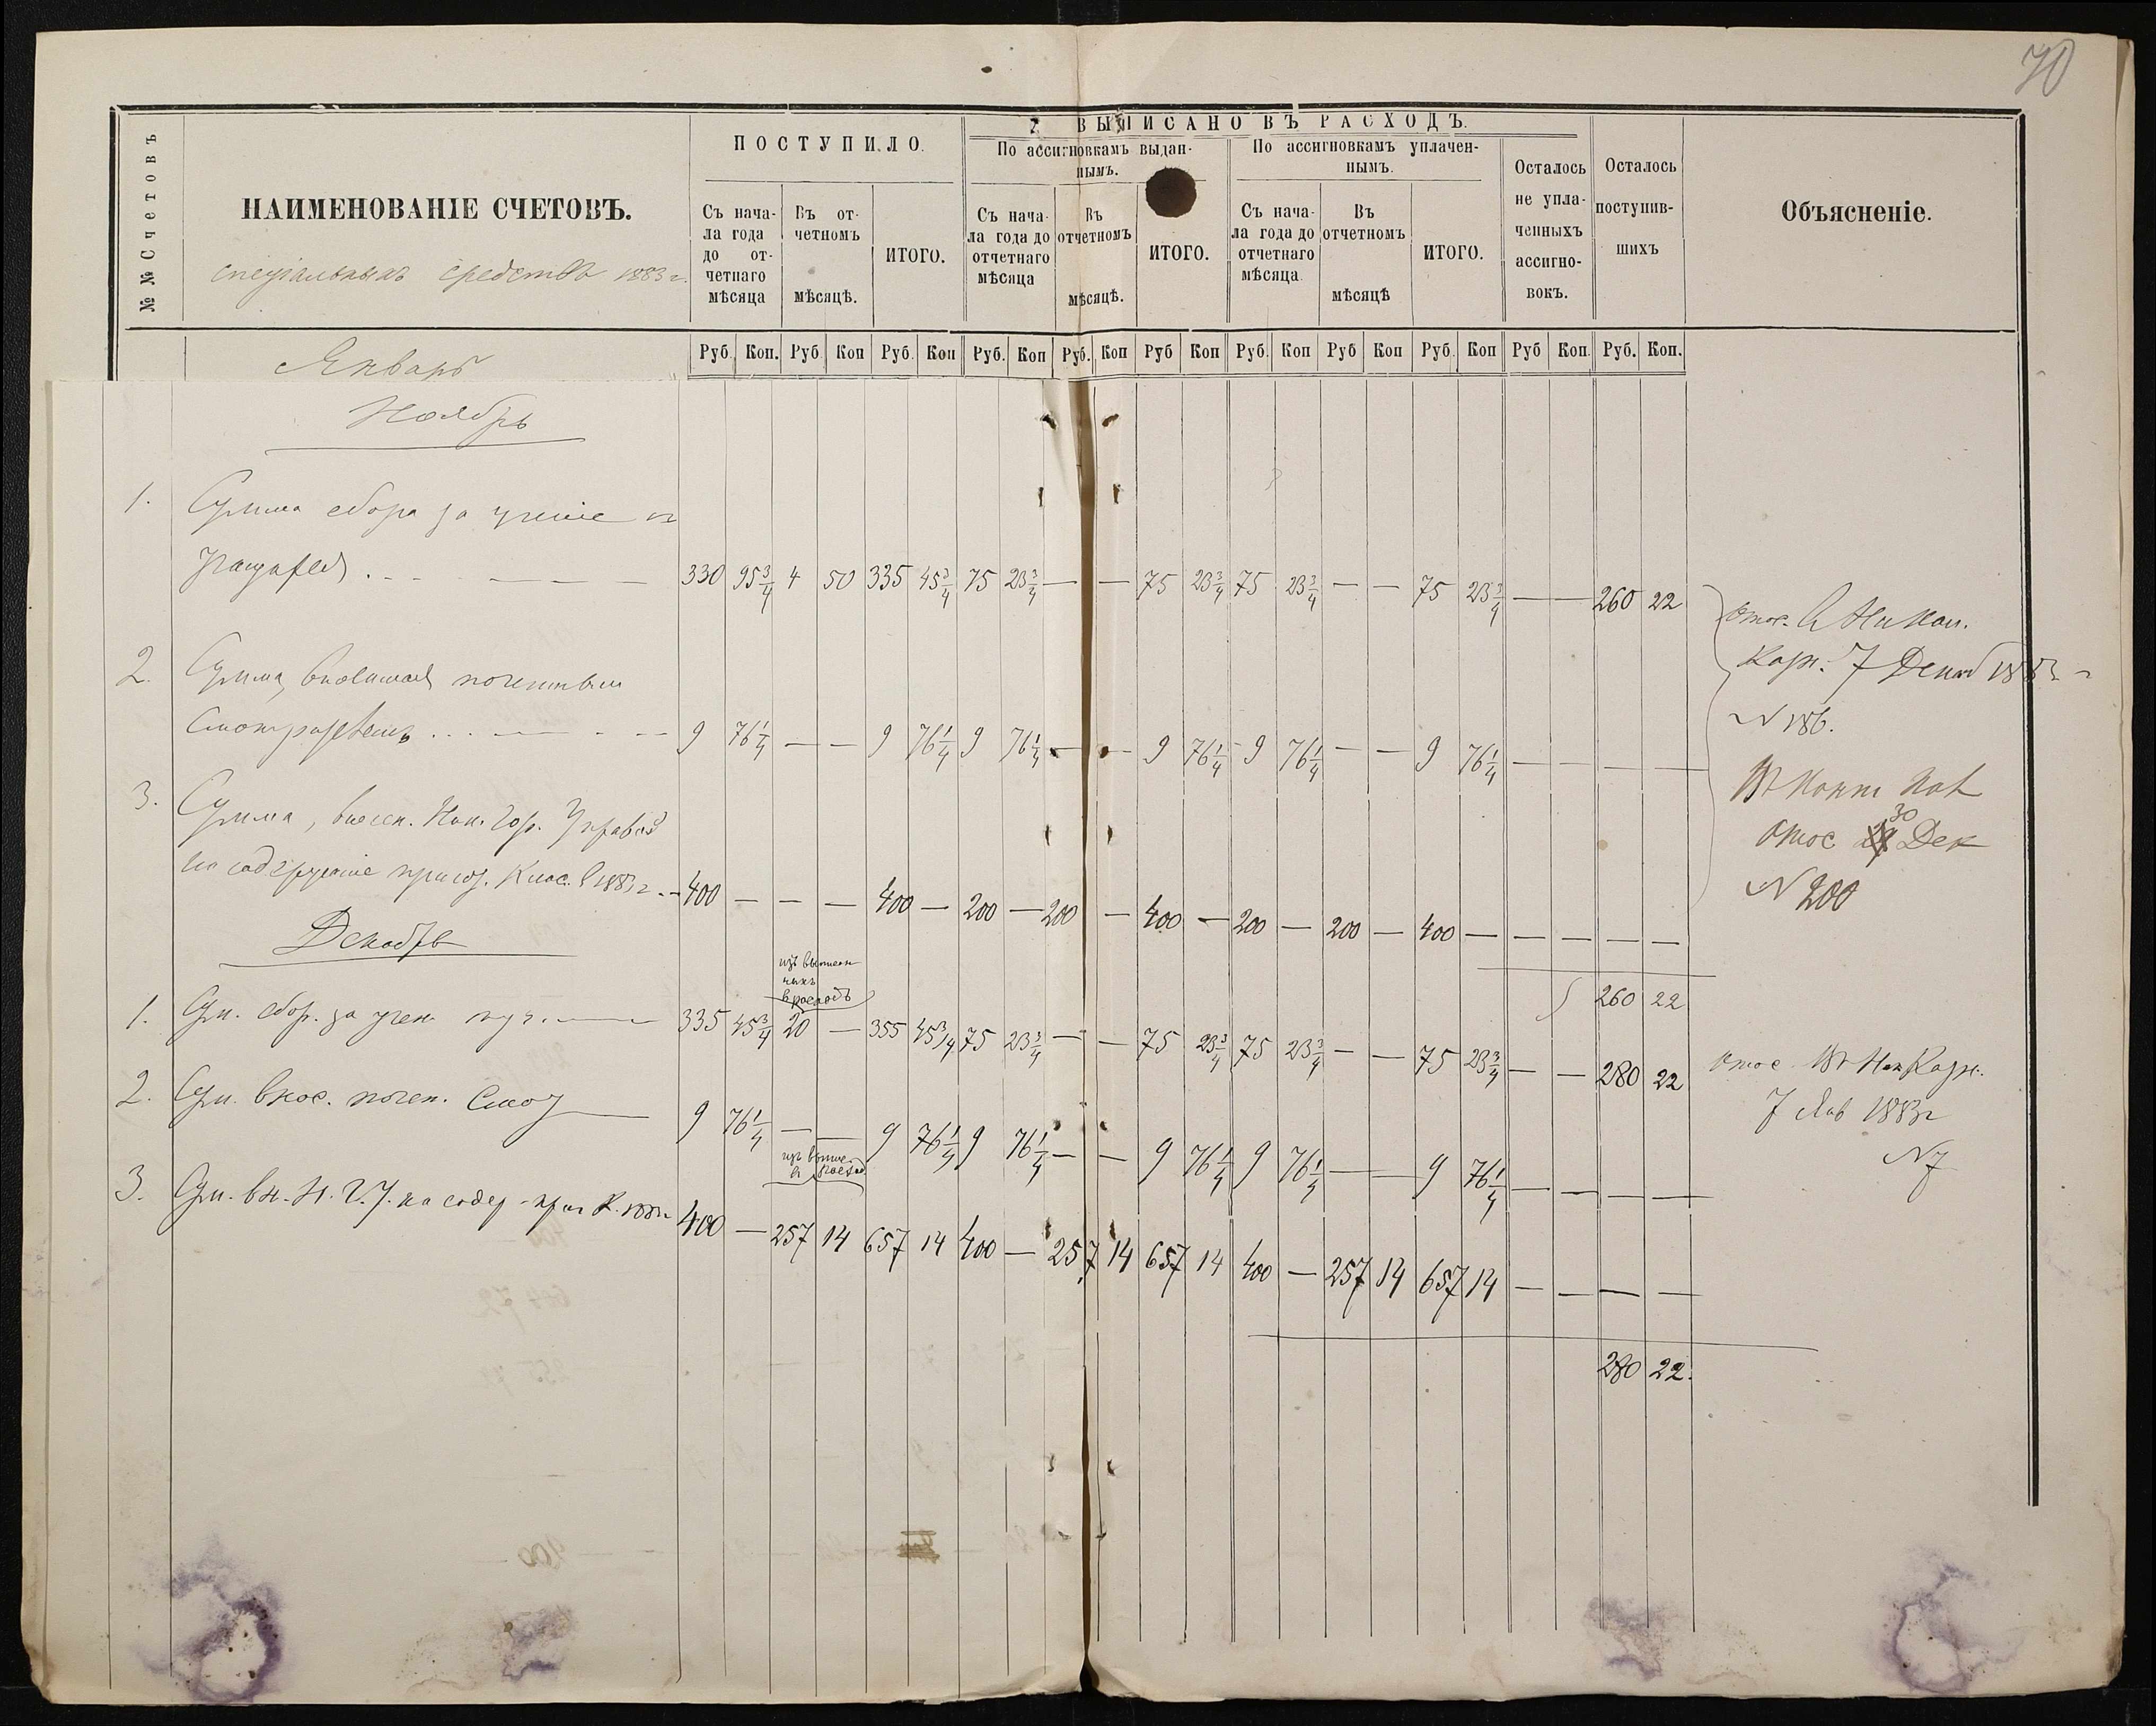 70
№№ Счетовъ
НАИМЕНОВАНІЕ СЧЕТОВЪ.
спеціальныхъ средствъ 1883 г.
ПОСТУПИЛО.
ВЫПИСАНО ВЪ РАСХОДЪ.
По ассигновкамъ выдан-
нымъ.
По ассигновкамъ уплачен-
нымъ.
Съ нача-
ла года
до от-
четнаго
мѣсяца
Въ от-
четномъ
мѣсяцѣ.
ИТОГО.
Съ нача-
ла года до
отчетнаго
мѣсяца
Въ
отчетномъ
мѣсяцѣ.
ИТОГО.
Съ нача-
ла года до
отчетнаго
мѣсяца.
Въ
отчетномъ
мѣсяцѣ
ИТОГО.
Осталось
не упла-
ченныхъ
ассигно-
вокъ.
Осталось
поступив-
шихъ
Объясненіе.
Руб. Коп. Руб Коп Руб. Коп Руб. Коп Руб. Коп Руб Коп Руб. Коп Руб Коп Руб. Коп Руб Коп. Руб. Коп.
Январь
Ноябрь
1. Сумма сбора за ученіе съ
учащихся . - - — — — 330 95 3/4 4 50 335 45 3/4 75 23 3/4 — — 75 23 3/4 75 23 3/4 — — 75 23 3/4 — — 260 22
2. Сумма, вносимая почетным
смотрителемъ . . . — - — 9 76 1/4 — — 9 76 1/4 9 76 1/4 — — 9 76 1/4 9 76 1/4 — — 9 76 1/4 — — — —
3. Сумма, внесен. Ник. Гор. Управой
на содержаніе приг. Клас. 188 г. - 400 — — — 400 — 200 — 200 — 400 — 200 — 200 — 400 — — — — —
260 22
Декабрь
изъ
1. Сум. сбор. за учен. — 335 45 3/4 20 — 355 45 3/4 75 23 3/4 — — 75 23 3/4 75 23 3/4 — — 75 23 3/4 — — 280 22
2. Сум. внос. почет. Смот — 9 76 1/4 — — 9 76 1/4 9 76 1/4 — — 9 76 1/4 9 76 1/4 — — 9 76 1/4 — — — —
3. Сум. вн. Н. Г. У. на содер. приг К. 400 — 257 14 657 14 400 — 257 14 657 14 400 — 257 14 657 14 — — — —
280 22.
7 Декаб
N 186.
30
Дек
N 200
7 Янв 1883 г
N 7